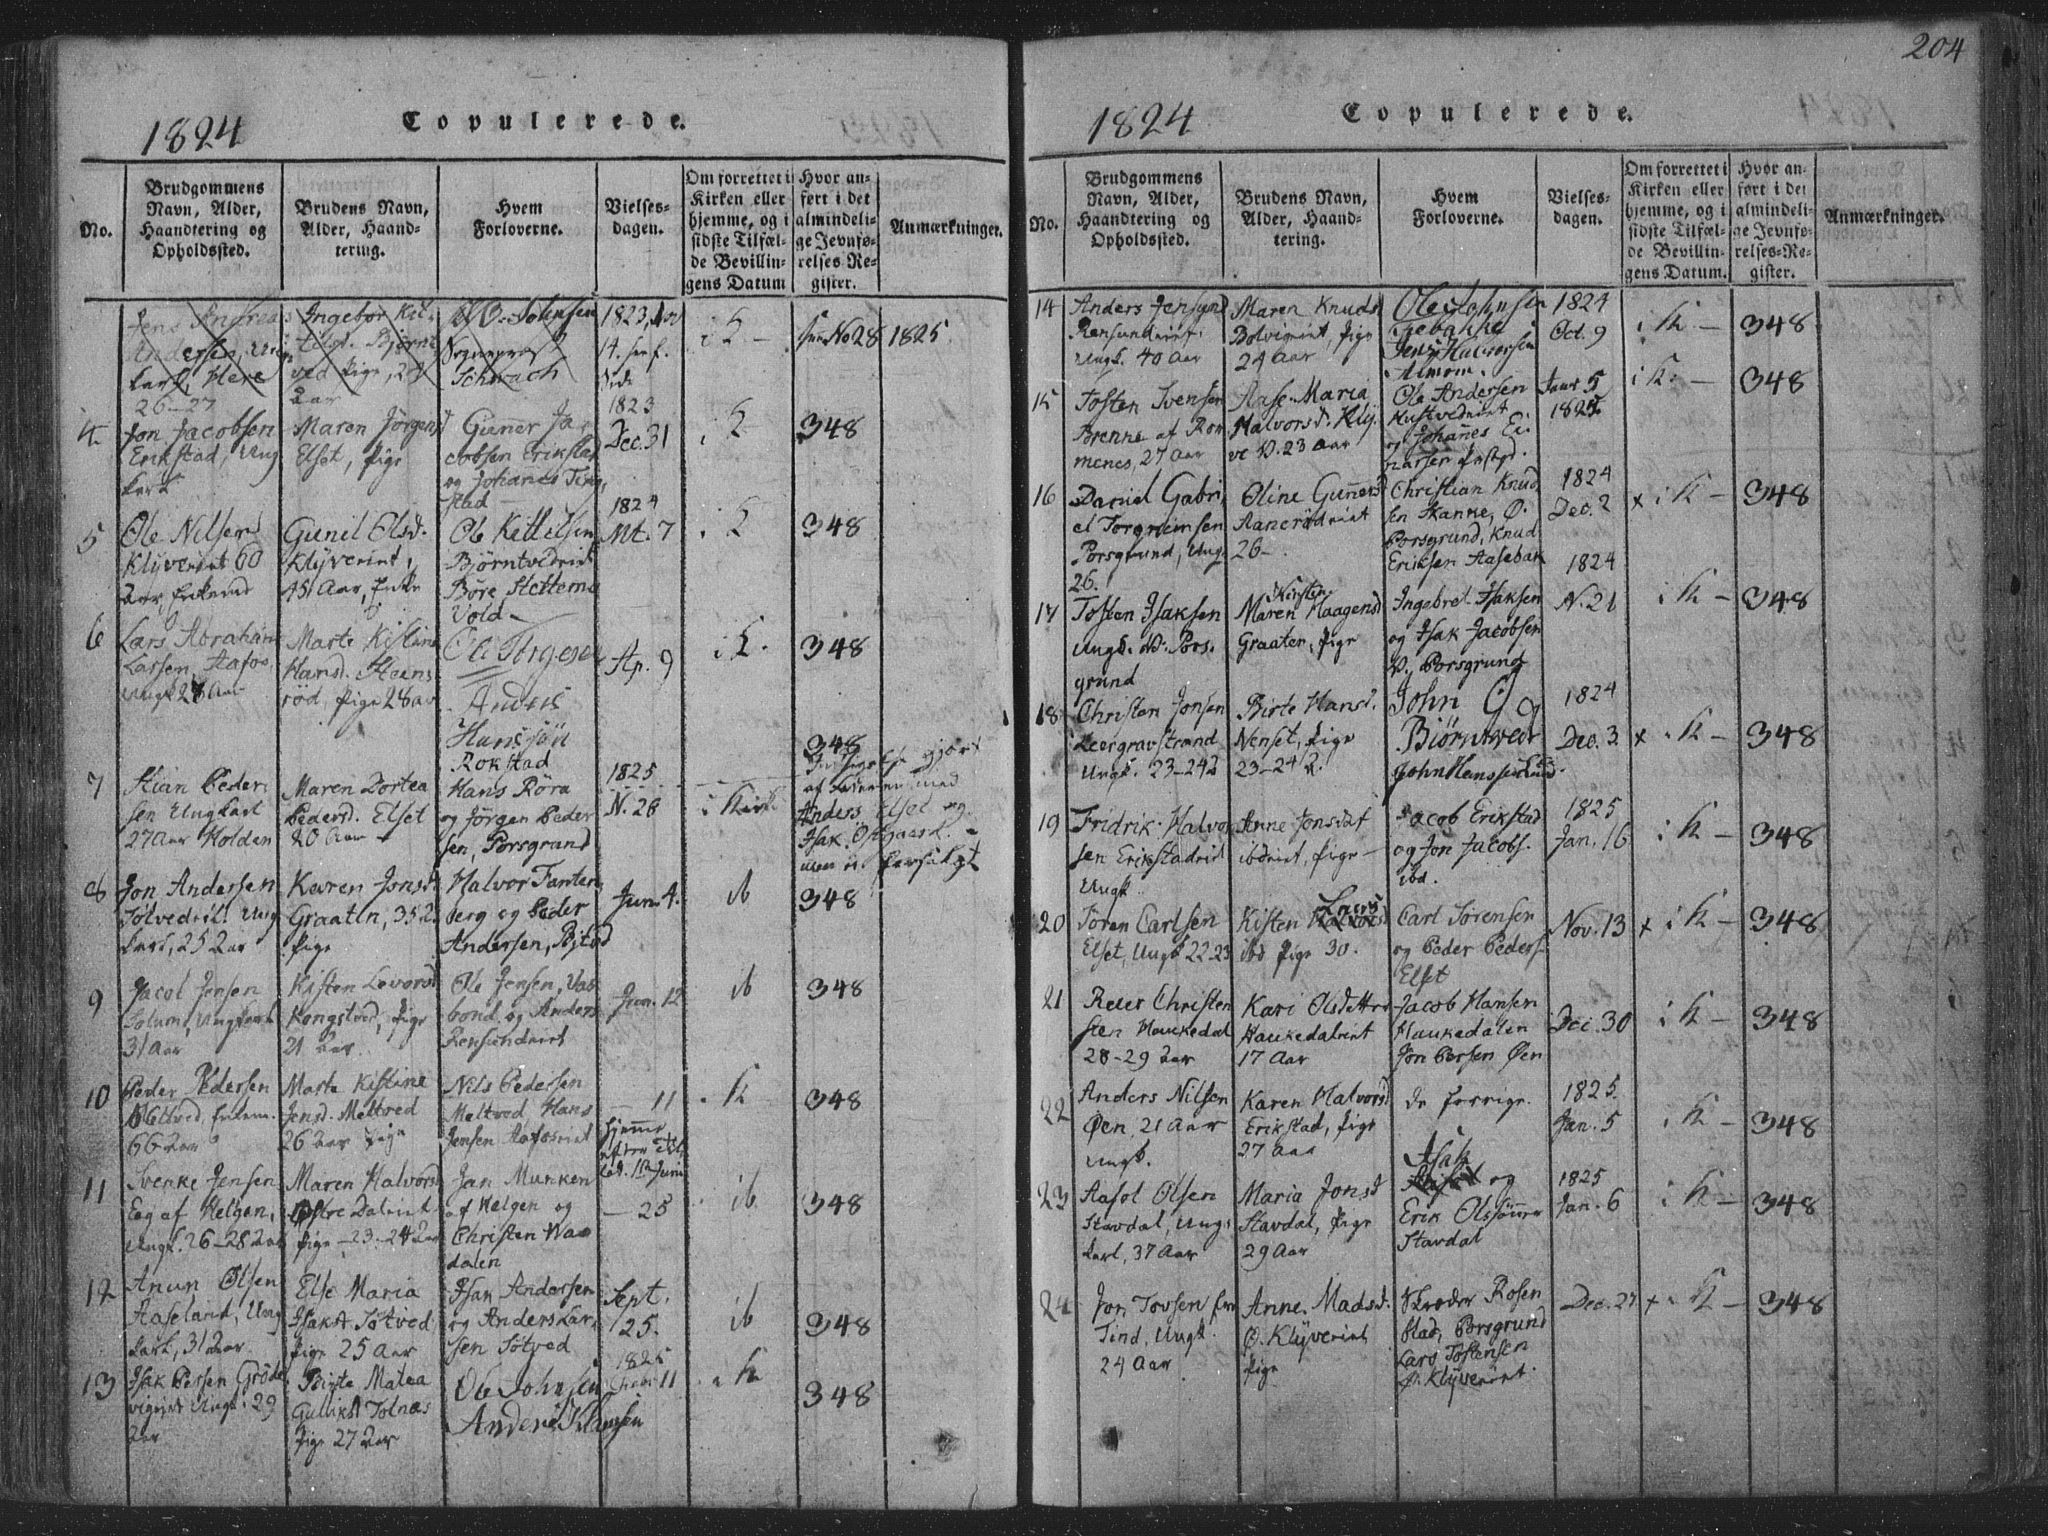 204
1824 Copulerede.
No.
Brudgommens
Navn, Alder,
Haandtering og
Opholdssted.
Brudens Navn,
Alder, Haand-
tering.
Hvem
Forloverne.
Vielses-
dagen.
Om forrettet i
Kirken eller
hjemme, og i
sidste Tilfæl-
de Bevillin-
gens Datum
Hvor an-
ført i det
almindeli-
ge Jevnfø-
relses Re-
gister.
Anmærkninger.
Jens Andreas
Andersen, Ung
karl, Here
26-27
Ingebor Kit-
Bjørnt
ved Pige, 23
Aar
Johnsen
Schwach
1823
14.
i K -
No 28 1825.
4.
Jon Jacobsen
Erikstad, Ung
karl
Maren Jørgensd
Elset, Pige
Guner Ja-
cobsen Erikstad
og Johanes
stad
1823
Dec. 31
i K -
348
5
Ole Nilsen
Klyverint 60
Aar, Enkemd
Gunil Olsd.
Klyverint,
45 Aar, Enke
Ole Kittelsen
Bjørntvedrint
Børe
Vold
1824
Mt. 7
i K
348
6
Lars Abraham
Lassen, Aafos
Ungk 28 Aar
Marte Kistine
Hansd. Steens
rød, Pige 28 aar
Ole Torgesen
Anders
Hanssøn
Rokstad
Ap. 9
i K.
348
7
Stian Peder
sen Ungkarl
27 Aar Holden
Maren Dortea
Pedersd. Elset
20 Aar
Hans Røra
og Jørgen Peder
sen, Porsgrund
1825
N. 28
i Kirk
348
gjort
af med
Anders Elset og
Isak Østgaard.
8
Jon Andersen
Tøtvedrit. Ung
karl, 25 Aar
Karen Jonsd.
Graaten, 35 A.
Pige
Halvor Fanten
berg og Peder
Andersen,
Jun. 4.
ib
348
9
Jacob Jensen
Solum, Ungkarl
31 Aar
Kisten Levorsd
Kongstved, Pige
21 Aar.
Ole Jensen, Vas
bond og Anders
Rensundrint
Jun. 12
ib
348
10
Peder Pedersen
Meltved Enkem.
66 Aar
Marte Kistine
Jensd. Meltved
26 Aar Pige
Nils Pedersen
Meltved Hans
Jensen Aafosrint
- 11
hjemme
efter
i K -
348
11
Svenke Jensen
Eeg af Helgen,
Ungk. 26-28 Aar
Maren Halvorsd
Østre Dalrint
Pige 23-24 Aar
Jan Munken
af Helgen og
Christen Waa
dalen
- 25
ib
348
12
Anun Olsen
Aaseland, Ung
karl, 31 Aar.
Else Maria
Isaksd. Tøtved
Pige 25 Aar
Isak Andersen
og Anders Lar-
sen Tøtved
Sept.
25.
ib
348
13
Isak Persen Grøde
Ungk. 29
Aar
Birte Matea
Guliksd Tolnæs
Pige 27 Aar
Ole Johnsen
Anders Klausen
1825
11
i K
348
1824 Copulerede.
No.
Brudgommens
Navn, Alder,
Haandtering og
Opholdssted.
Brudens Navn,
Alder, Haand-
tering.
Hvem
Forloverne.
Vielses-
dagen.
Om forrettet i
Kirken eller
hjemme, og i
sidste Tilfæl-
de Bevillin-
gens Datum.
Hvor an-
ført i det
almindeli-
ge Jevnfø-
relses-Re-
gister.
Anmærkninger.
14
Anders Jensen
Rensundrint.
Ungk. 40 Aar
Maren Knuds
Bolvigrint, Pige
24 Aar
Ole Johnsen
Gebakke
Jens Halvorsen
1824
Oct. 9
i K -
348
15
Tosten Svensen
Brenne af Rom
menes, 27 Aar
Aase Maria
Halvorsd.
23 Aar
Ole Andersen
og Johanes Ei
narsen
5
1825
i K -
348
16
Daniel Gabri
el Torgrimsen
Porsgrund, Ungk
26.
Oline Gunersd
26 -
Christian Knud
sen Skanke, Ø.
Porsgrund, Knud
Eriksen Aasebak
1824
Dec. 2
× i K -
348
17
Tosten Isaksen
Ungk. V. Pors.
grund
Kirsten
Maren Haagensd
Graaten, Pige
Ingebret Isaksen
og Isak Jacobsen
V. Porsgrund
1824
N. 21
i K -
348
18
Christen Jonsen
Leergravstrand
Ungk. 23-24 A
Birte Hansd.
Nenset, Pige
23-24 A.
John
Biørntvedt
John Hanssen
1824
Dec. 3.
× i K -
348
19
Fridrik Halvor
sen Erikstadrid
Ungk.
Anne Jonsdat
ibdrint, Pige -
Jacob Erikstad
og Jon Jacobs.
ibd.
1825
Jan. 16
i K -
348
20
Søren Carlsen
Elset, Ungk 22-23
Kisten Larsd
ibd Pige 30.
Carl Sørensen
og Peder Peders
Elset
Nov. 13
× i K -
348
21
Reier Christen
sen Haukedal
28-29 Aar
Kari Olsdatter
Haukedalrint
17 Aar
Jacob Hansen
Haukedalen
Jon Persen Øen
Dec. 30
i K -
348
22
Anders Nilsen
Øen. 21 Aar
Ungk.
Karen Halvorsd
Erikstad, Pige
27 Aar
de forrige.
1825.
Jan. 5
i K -
348
23
Aasol Olsen
Stavdal, Ung-
karl, 37 Aar
Maria Jonsd
Stavdal, Pige
29 Aar
Isak
og
Erik Olssønner
Stavdal
1825
Jan. 6
i K -
348
24
Jon Tovsen fra
Tind, Ungk.
24 Aar
Anne Madsd.
Ø. Klyverint
Pige
Skrøder Rosen
blad, Porsgrund
Lars Tostensen
Ø. Klyverint.
Dec. 27
× i K -
348